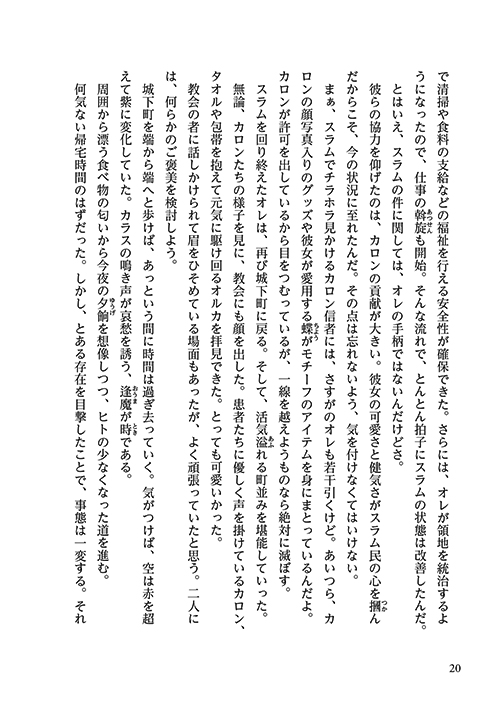 で清掃や食料の支給などの福祉を行える安全性が確保できた。さらには、オレが領地を統治するよ
うになったので、仕事の斡旋も開始。そんな流れで、とんとん拍子にスラムの状態は改善したんだ。
とはいえ、スラムの件に関しては、オレの手柄ではないんだけどさ。
彼らの協力を仰げたのは、カロンの貢献が大きい。彼女の可愛さと健気さがスラム民の心を摑ん
だからこそ、今の状況に至れたんだ。その点は忘れないよう、気を付けなくてはいけない。
まぁ、スラムでチラホラ見かけるカロン信者には、さすがのオレも若干引くけど。あいつら、カ
ロンの顔写真入りのグッズや彼女が愛用する蝶がモチーフのアイテムを身にまとっているんだよ。
カロンが許可を出しているから目をつむっているが、一線を越えようものなら絶対に滅ぼす。
スラムを回り終えたオレは、再び城下町に戻る。そして、活気溢れる町並みを堪能していった。
無論、カロンたちの様子を見に、教会にも顔を出した。患者たちに優しく声を掛けているカロン、
タオルや包帯を抱えて元気に駆け回るオルカを拝見できた。とっても可愛いかった。
教会の者に話しかけられて眉をひそめている場面もあったが、よく頑張っていたと思う。二人に
は、何らかのご褒美を検討しよう。
城下町を端から端へと歩けば、あっという間に時間は過ぎ去っていく。気がつけば、空は赤を超
えて紫に変化していた。カラスの鳴き声が哀愁を誘う、逢魔が時である。
周囲から漂う食べ物の匂いから今夜の夕餉を想像しつつ、ヒトの少なくなった道を進む。
何気ない帰宅時間のはずだった。しかし、とある存在を目撃したことで、事態は一変する。それ
20